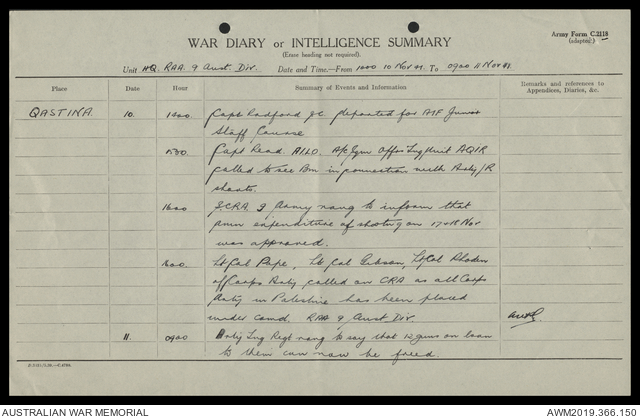 Army Form C.2118
(adapted)
WAR DIARY or INTELLIGENCE SUMMARY
(Erase heading not required).
Unit HQ. RAA. 9 Aust. Div. Date and Time.—From 1000 10 Nov 41. To 0900 11 Nov 41.
Place Date Hour Summary of Events and Information Remarks and references to
Appendices, Diaries, &c.
QASTINA. 10. 1400. Capt Radford departed for AIF Junior
Staff Course
1530. Capt Read. AILO.
called to see Bm in connection with Arty/R
shoots.
1600 S.C.R.A. 9 Army rang to inform that
ammn expenditure of shooting on 17 & 18 Nov
was approved.
1600. Lt Col Pape, Lt Col Gibson, Lt Col Rhoden
of Corps Arty called on CRA as all Corps
Arty in Palestine has been placed
under comd. RAA 9 Aust Div.
11. 0900 Arty Trg Regt rang to say that 12 guns on loan
to them can now be freed.
AUSTRALIAN WAR MEMORIAL AWM2019.366.150